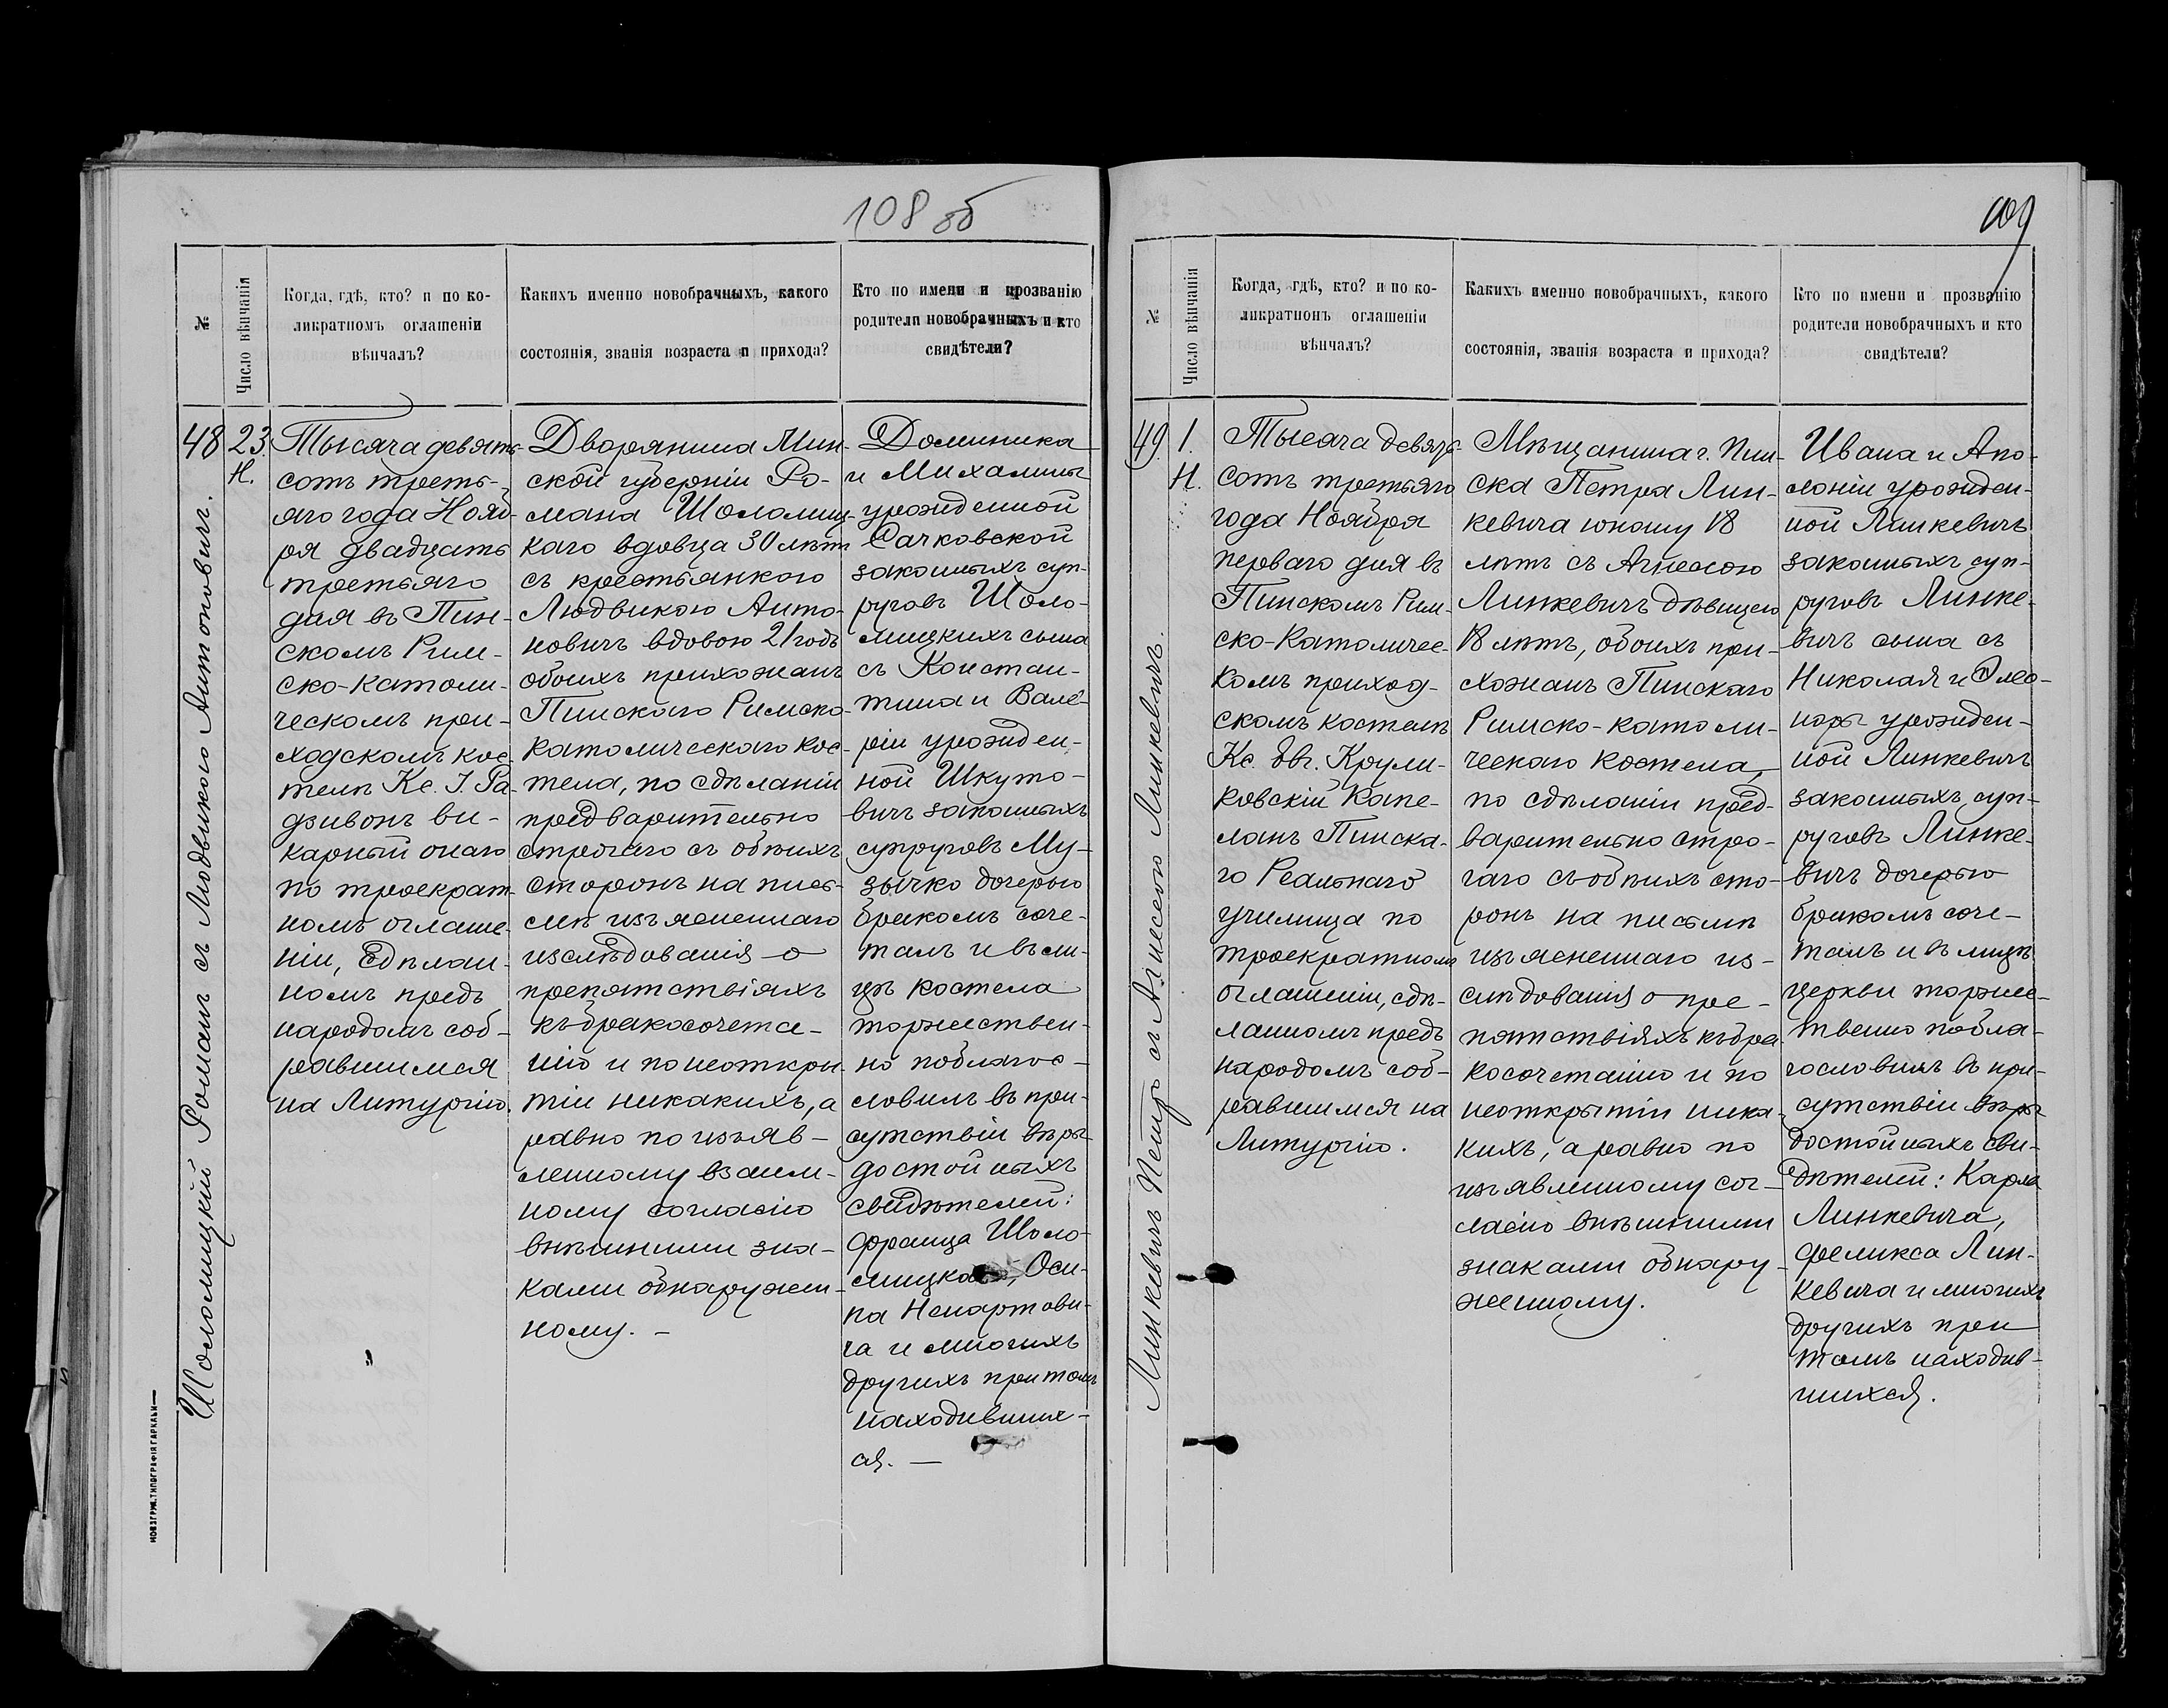 108 об
№
Число вѣнчанія
Когда, гдѣ, кто? и по ко-
ликратномъ оглашеніи
вѣнчалъ?
Какихъ именно новобрачныхъ, какого
состоянія, званія возраста и прихода?
Кто по имени и прозванію
родители новобрачныхъ и кто
свидѣтели?
Шоломицкій Романъ съ Людвикою Антоновичъ.
48
23.
Н.
Тысяча девять-
сотъ треть-
яго года Нояб-
ря двадцать
третьяго
дня въ Пин-
скомъ Рим-
ско-католи-
ческомъ при-
ходскомъ кос-
телѣ Кс. I. Ра-
дзивонъ ви-
карный онаго
по троекрат-
номъ оглаше-
ніи, сдѣлан-
номъ предъ
народомъ соб-
равшимся
на Литургію.
Дворянина Мин-
ской губерніи Ро-
мана Шоломиц-
каго вдовца 30 лѣтъ
съ крестьянкою
Людвикою Анто-
новичъ вдовою 21 годъ
обоихъ прихожанъ
Пинскаго Римско-
католическаго кос-
тела, по сдѣланіи
предварительно
строгаго съ обѣихъ
сторонъ на пись-
мѣ изъясненнаго
изслѣдованія о
препятствіяхъ
къ бракосочета-
нію и по неоткры-
тіи никакихъ, а
равно по изъяв-
ленному взаим-
ному согласію
внѣшними зна-
ками обнаружен-
ному. —
Доминика
и Михалины
урожденной
Сачковской
законныхъ суп-
руговъ Шоло-
мицкихъ сына
съ Констан-
тина и Вале-
ріи урожден-
ной Шкуто-
вичъ законныхъ
супруговъ Му-
зычко дочерью
бракомъ соче-
талъ и въ ли-
цѣ костела
торжествен-
но поблагос-
ловилъ въ при-
сутствіи вѣры
достойныхъ
свидѣтелей:
Франца Шоло-
Оси-
па Ненартови-
ча и многихъ
другихъ при томъ
находивших-
ся. —
НОВОГРУД. ТИПОГРАФІЯ ГАРКАВИ
109
№
Число вѣнчанія
Когда, гдѣ, кто? и по ко-
ликратномъ оглашеніи
вѣнчалъ?
Какихъ именно новобрачныхъ, какого
состоянія, званія возраста и прихода?
Кто по имени и прозванію
родители новобрачныхъ и кто
свидѣтели?
Линкевичъ Петръ съ Агнесою Линкевичъ.
49.
1.
Н.
Тысяча девять-
сотъ третьяго
года Ноября
перваго дня въ
Пинскомъ Рим-
ско-Католичес-
комъ приход-
скомъ костелѣ
Кс. Эв. Крули-
ковскій Капе-
ланъ Пинска-
го Реальнаго
училища по
троекратномъ
оглашеніи, сдѣ-
ланномъ предъ
народомъ соб-
равшимся на
Литургію.
Мѣщанина г. Пин-
ска Петра Лин-
кевича юношу 18
лѣтъ съ Агнесою
Линкевичъ дѣвицею
18 лѣтъ, обоихъ при-
хожанъ Пинскаго
Римско-католи-
ческаго костела,
по сдѣланіи пред-
варительно стро-
гаго съ обѣихъ сто-
ронъ на письмѣ
изъясненнаго из-
слѣдованія о пре-
пятствіяхъ къ бра-
косочетанію и по
неоткрытіи ника-
кихъ, а равно по
изъявленному сог-
ласію внѣшними
знаками обнару-
женному.
Ивана и Апо-
лоніи урожден-
ной Линкевичъ
законныхъ суп-
руговъ Линке-
вичъ сына съ
Николая и Элео-
норы урожден-
ной Линкевичъ
законныхъ суп-
руговъ Линке-
вичъ дочерью
бракомъ соче-
талъ и въ лицѣ
церкви торжес-
твенно побла-
гословилъ въ при-
сутствіи вѣры
достойныхъ сви-
дѣтелей: Карла
Линкевича,
Феликса Лин-
кевича и многихъ
другихъ при
томъ находив-
шихся.